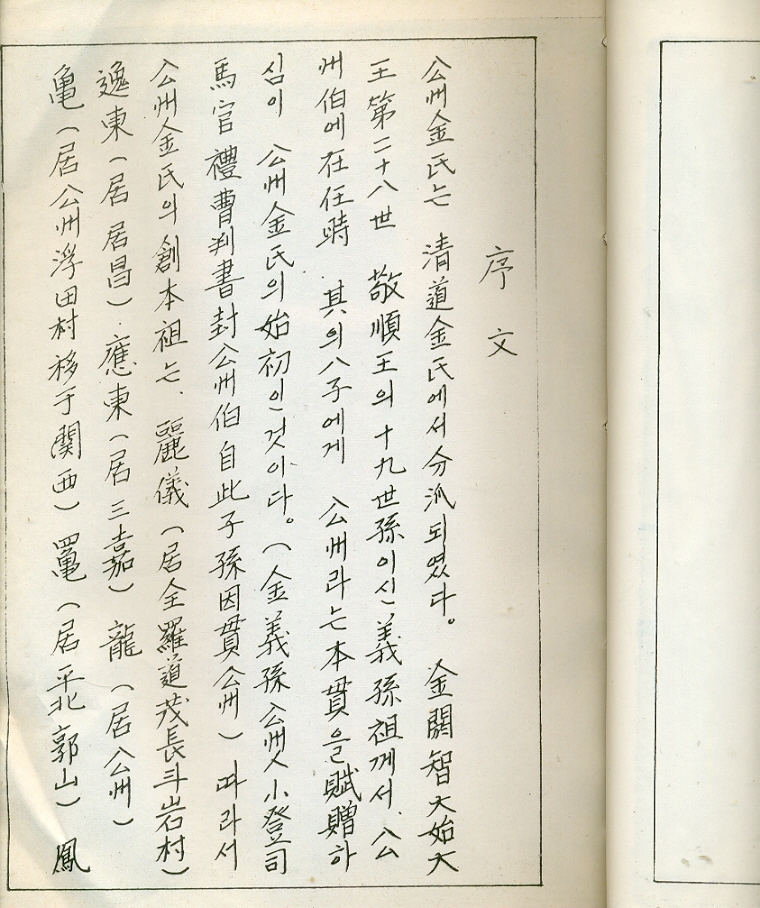 序文
公州金氏는 清道金氏에서 分派되였다。 金閼智大始太
王第二十八世 敬順王의 十九世孫이신 義孫祖께서、公
州伯에 在任時 其의 八子에게 公州라는 本貫을 賦贈하
심이 公州金氏의 始初인 것이다。(金義孫公州人 小登司
馬官禮曹判書封公州伯自此子孫因貫公州) 따라서
公州金氏의 創本祖는、麗儀(居全羅道茂長斗岩村)
逸東(居居昌)、應東(居三嘉) 龍(居公州)
亀(居公州浮田村移于関西) 鼍(居平北郭山) 鳳